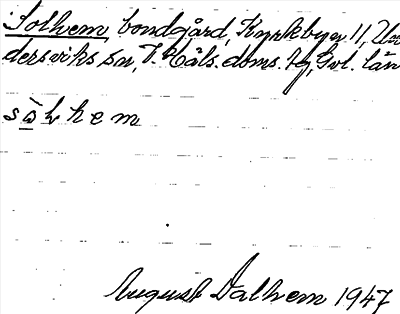 Solhem, bondgård, Kyrkbyn 11, Un
dersviks sn, V. Häls. doms. tg, Gvl. län
sòlhem
August Dalhem 1947